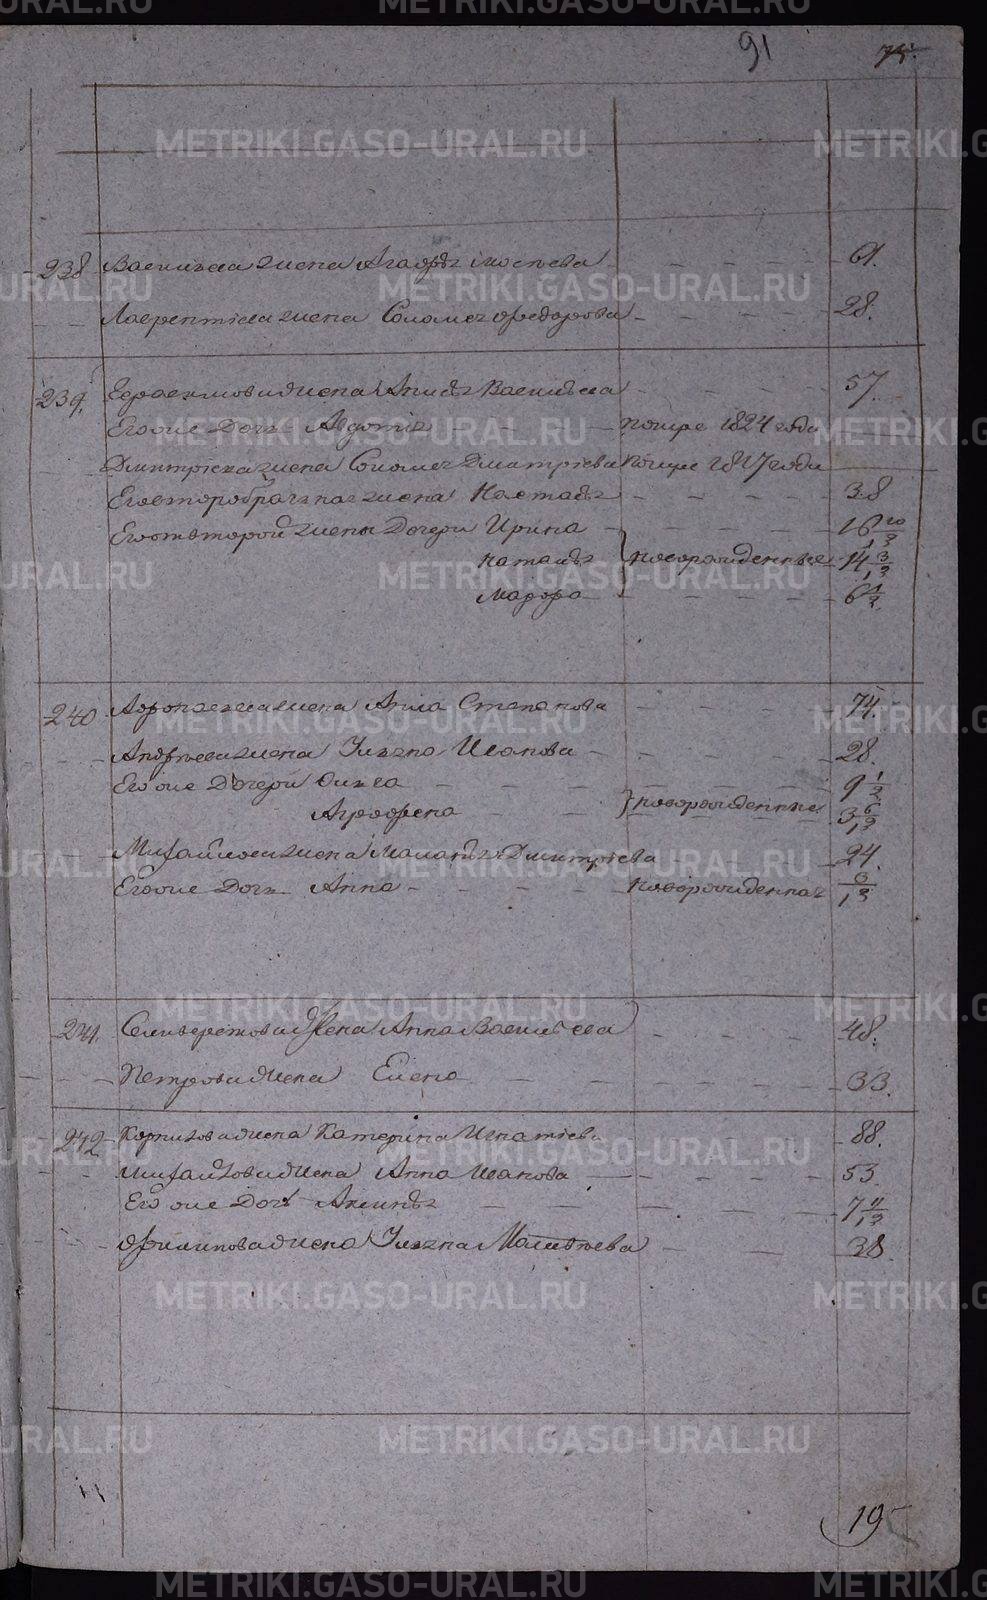 METRIKI.GASO-URAL.RU
91 75.
238 Васильева жена Агафья Мосеева 61.
Лаврентиева жена Соломея Федорова 28.
239. Герасимова жена Анисья Васильева 57.
Его же дочь Авдотья помре 1824 года
Дмитриева жена Соломея Дмитриева помре 1817 года
Его второбрачная жена Настасья 38
Его от второй жены дочери Ирина 16 10/12
Наталья } новорожденные 14 3/12
Марфа 6 1/2
240 жена Анна Степанова 74.
Андреева жена Ульяна Иванова 28.
Его же дочери Ольга 9 1/2
Аграфена } новорожденные 3 6/12
Михайлова жена Маланья Дмитриева 24.
Его же дочь Анна новорожденная 6/12
241. Селиверстова жена Анна Васильева 48.
Петрова жена Елена 33.
242 Корнилова жена Катерина Игнатиева 88.
Михайлова жена Анна Иванова 53.
Его же дочь Аксинья 7 11/12
Филипова жена Ульяна Матвеева 38.
19